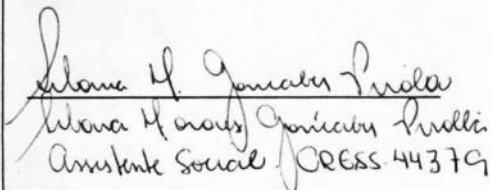 Silvana M. Gonçalves Pirola
Silvana Moraes Gonçalves Pirolla
Assistente Social CRESS 44379